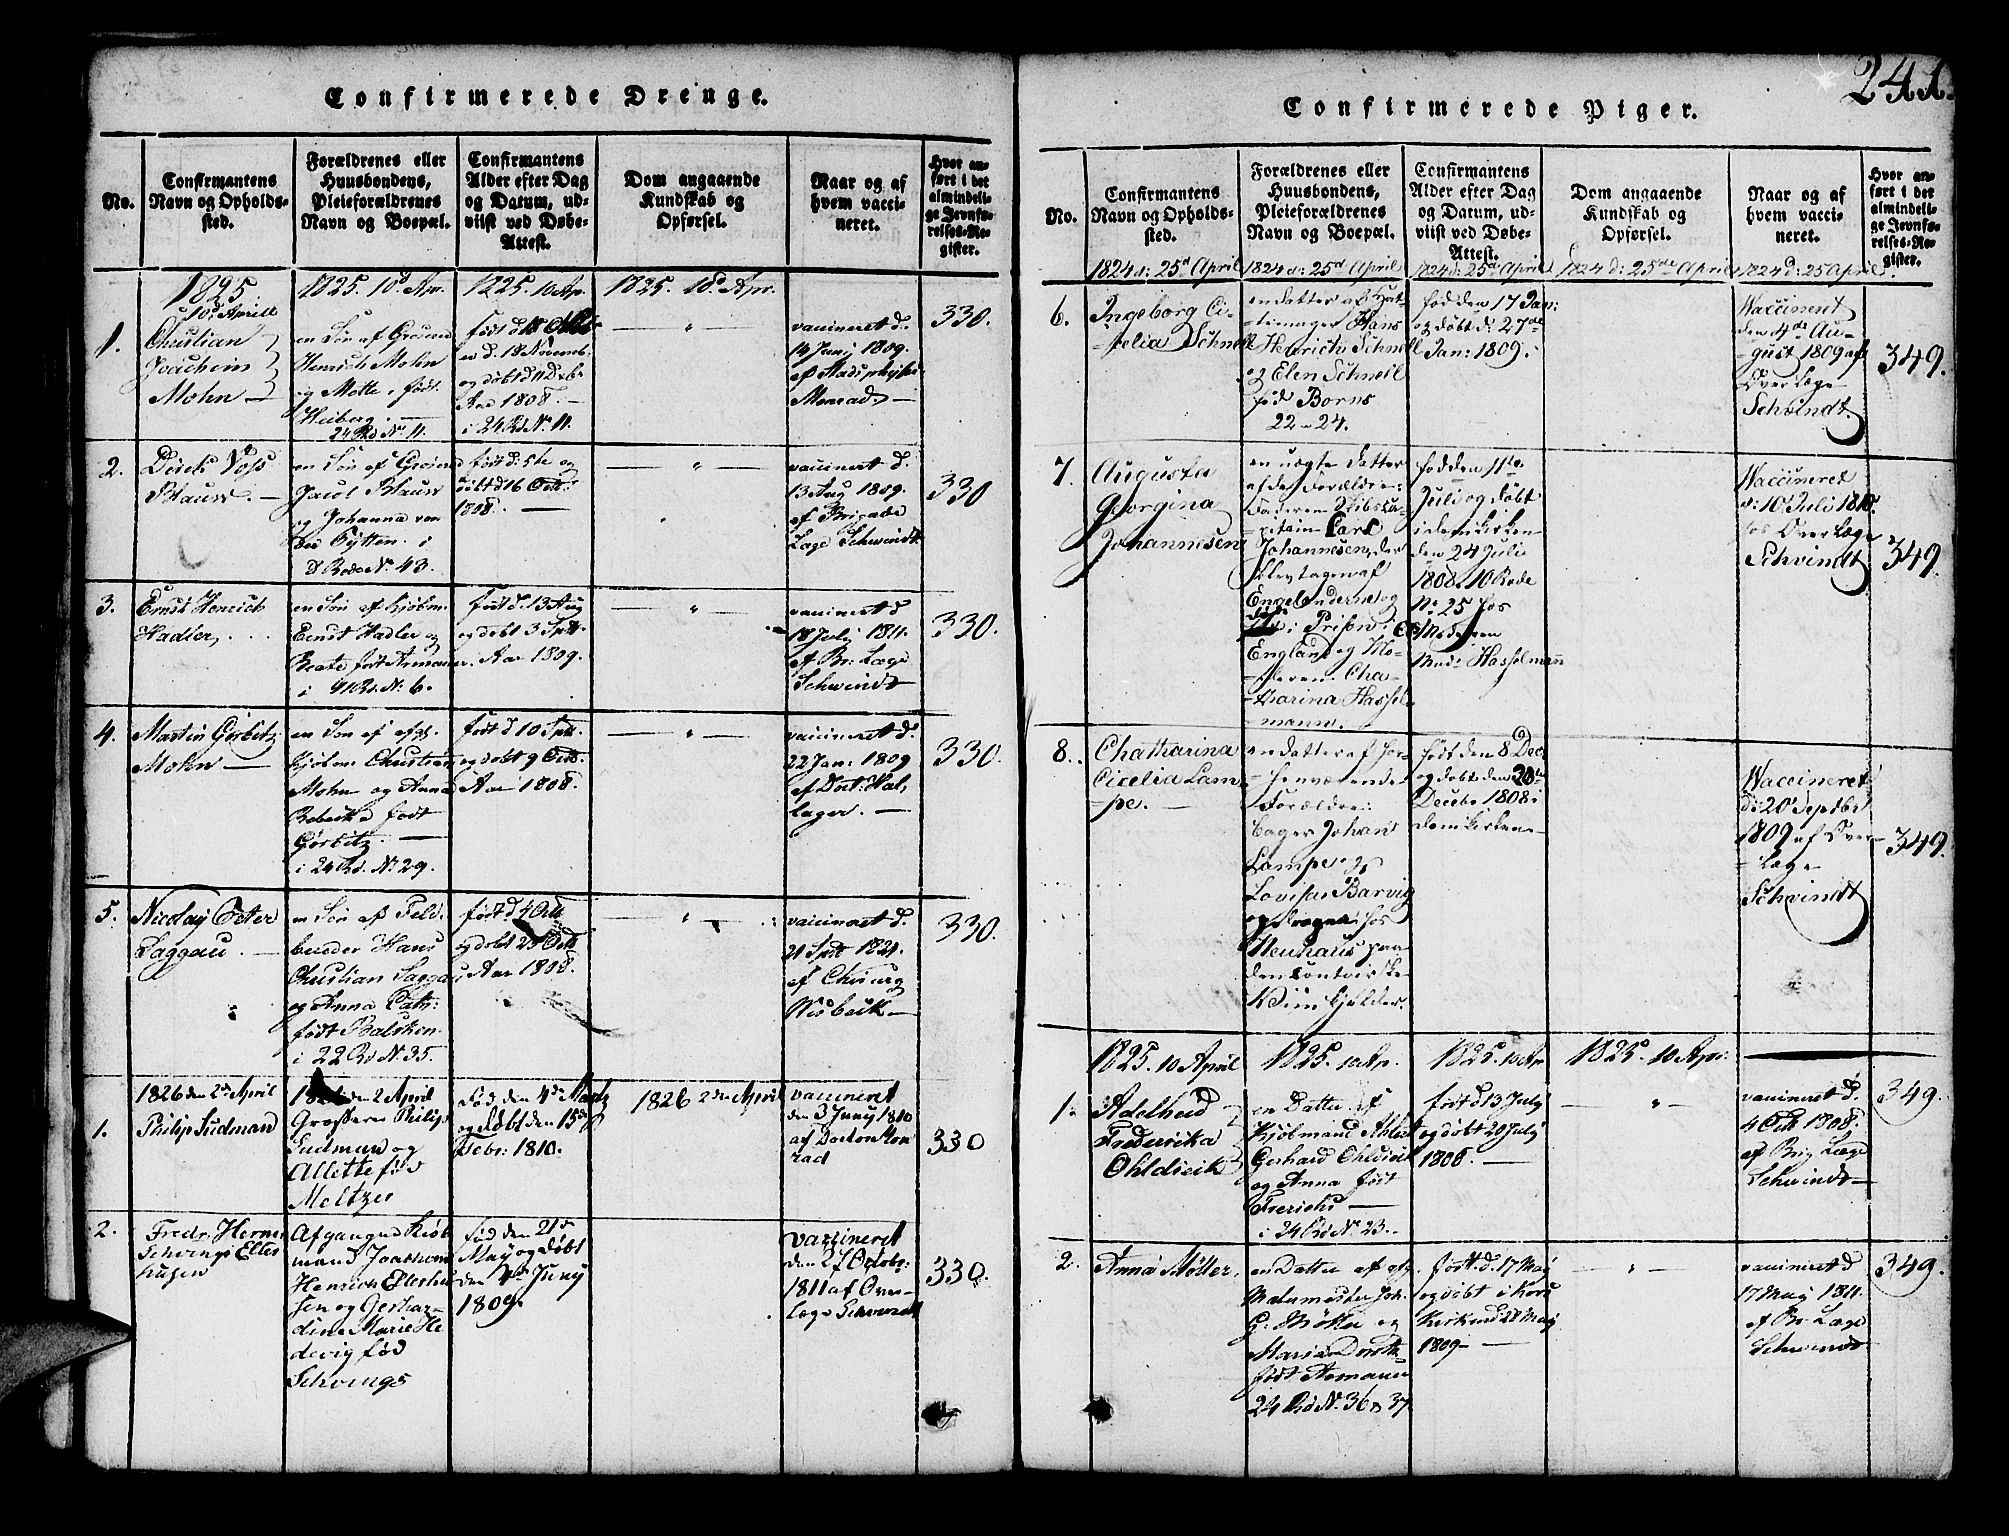 Confirmerede Drenge.
No.
Confirmantens
Navn og Opholds-
sted.
Forældrenes eller
Huusbondens,
Pleieforældrenes
Navn og Boepæl.
Confirmantens
Alder efter Dag
og Datum, ud-
viist ved Døbe-
Attest.
Dom angaaende
Kundskab og
Opførsel.
Naar og af
hvem vacci-
neret.
Hvor an-
ført i det
almindeli-
ge Jevnfø-
relses-Re-
gister.
1825
10d Aprill
1825. 10d Apr.
1825. 10 Ap.
1825. 10d Apr.
1.
Christian
Joachim
Mohn
en Søn af
Henrich Mohn
og Mette, født
Heiberg.
24 Rd No 11.
er d. 18 Novemb:
og døbt d 11 Decb
Aar 1808.
i 24 Rd No 11.
vaccineret d.
14 Junj 1809.
af Stadsphysic:
330.
2.
Diderk Voss
Blauw.
en Søn af
Jacob Blauw
og Johanna von
der Lytten. i
8 Rode No 43.
født d: 5te og
døbt d 16 Octb:
1808.
vaccineret d.
13 Aug 1809.
af Brigade
Læge Schwindt
330
3.
Ernst Henrich
Hadler,
en Søn af Kjøbm.
Ernst Hadler og
Beate født Armauer.
i 9 Rd. No 6.
født d. 13 Aug
og døbt 3 Sptb
Aar 1809.
vaccineret d
18 Julj 1811.
af Br: Læge
Schwindt
330.
4.
Martin Gørbitz
Mohn
en Søn af afg.
Kjøbm: Christian
Mohn og Anna
Rebecka født
Gørbitz.
i 24 Rd. No 29.
født d 10 Sptb.
og døbt 9 Octb.
Aar 1808.
vaccineret d.
22 Jan: 1809
af Doct: Hal,
lager.
330.
5.
Nicolay Peter
Saggau.
en Søn af Feld-
bereder Hans
Christian Sagga
og Anna Cath:
født Balchen
i 22 Rd No 35.
født d 4 Octb
og døbt 23 Octb
i Aar 1808.
vaccineret d.
21 Sptb 1821.
af Chirurg
Wisbech
330.
1826 den 2d April
den 2 April
1826 2den April
1.
Philip Sudman
Philip
Sudman og
Allette fød
Meltzer
Fød den 4de
og døbt den 15de
Febr: 1810.
vaccineret
den 3 Juny 1810
af Doctor Kon
rad
330
2.
Fredr: Herm:
Schvings Ellers
husen
Afgangne Kiøb
mand Joachim
Henrich Ellershu
sen og Gerhar-
dine Marie He
devig fød
Schvings
fød den 21de
May og døbt
den Juny
1809.
vaccineret
den 27 Octob:
1811 af Over
Læge Schwindt
330.
241.
Confirmerede Piger.
No.
Confirmantens
Navn og Opholds-
sted.
Forældrenes eller
Huusbondens,
Pleieforældrenes
Navn og Boepæl.
Confirmantens
Alder efter Dag
og Datum, ud-
viist ved Døbe-
Attest.
Dom angaaende
Kundskab og
Opførsel.
Naar og af
hvem vacci-
neret.
Hvor an-
ført i det
almindeli-
ge Jevnfø-
relses-Re-
gister.
1824 d: 25d April
1824 d: 25d April
1824 d: 25d April
1824 d: 25de April
1824 d: 25 April
6.
Ingeborg Ci-
celia Schnell
en datter af Hat-
temager Hans
Henrich Schnell
og Elen Schnell
fød Borns
22 - 24.
fød den 17 Jan:
og døbt d: 27de
Jan: 1809.
Vaccineret
den 4de Au-
gust 1809 af
Over Læge
Schvindt.
349.
7.
Augusta
Georgina
Johannesen
en uægte datter
af des Forældre:
Faderen Skibsca-
pitain Carl
Johannesen, der
blev tagen af
Engelænderne og
i Prison i
England og Mo-
deren Cha-
tharina Hassel
mann.
fød den 11te
Juli og døbt
i domkirken
den 24 Juli
1808. 10 Rode
No 25 hos
Moderen
Mad: Hasselmann
Vaccineret
d: 10 Juli 1810.
hos Over Læge
Schvindt
349.
8.
Chatharina
Cicelia Lam-
pe.
en datter af her-
henværende
Forældre:
Bager Johan
Lampe og
Lovisa Barvig
hos
Neuhaus paa
den Contoirske
Viinkjelder.
født den 8 Dec
og døbt den 20de
Decebr 1808 i
domkirken
Vaccineret
d: 20 Septbr
1809 af Over-
Læge
Schvindt
349.
1825. 10 April
1825. 10 Ap.
1825. 10 Ap
1825. 10 Apr:
1.
Adelheid
Frederika
Ohldieik
en Datter af
Kjøbmand Ahlert
Gerhard Ohldieik
og Anna født
Frerichs
i 24 Rd No 23.
født d 13 July
og døbt 20 July
1808.
vaccineret d.
4 Octb 1808.
af Brig Læge
Schwindt
349.
2.
Anna Møller.
en Datter af afg.
Malermester Joh.
G: Møller og
Maria Doroth:
født Armauer
24 Rd No 36 & 37
født d. 17 May
og døbt i Kors
Kirken d 28 May
1809
vaccineret d
17 May 1811.
af Br Læge
Schwindt
349.